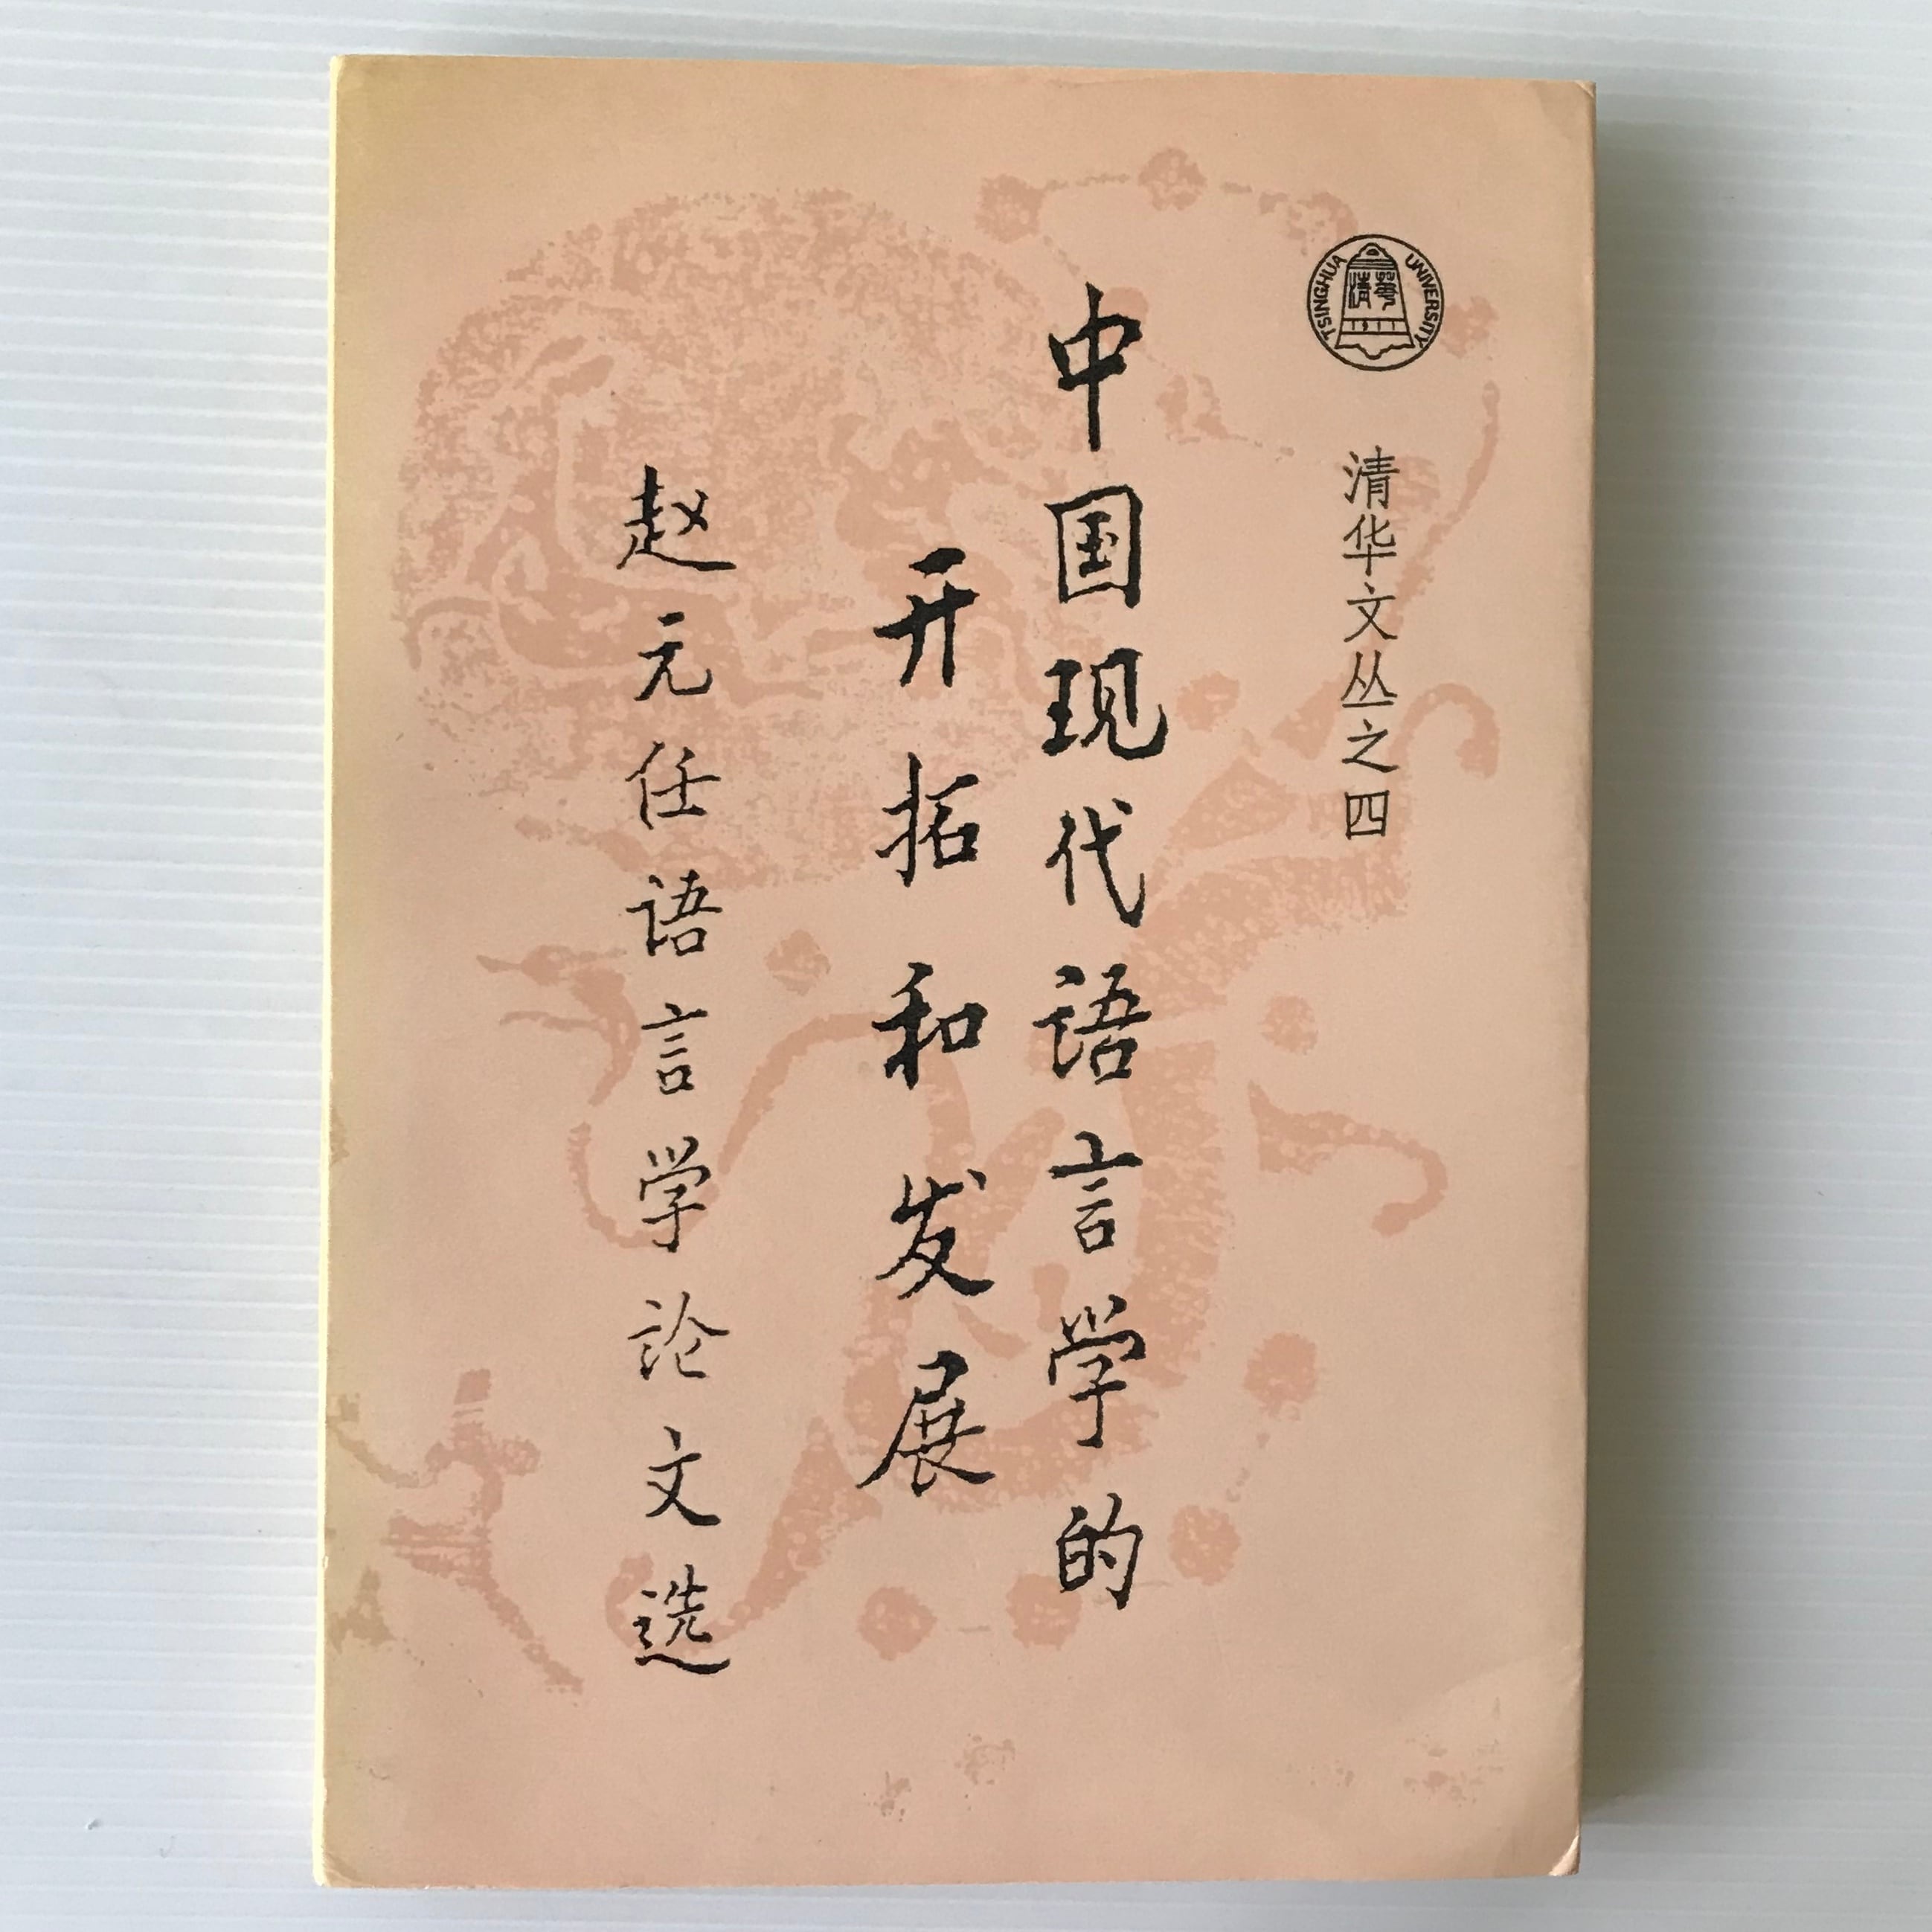 TSINGHUA UNIVERSITY
清華
1911
清华文丛之四
中国现代语言学的
开拓和发展
赵元任语言学论文选